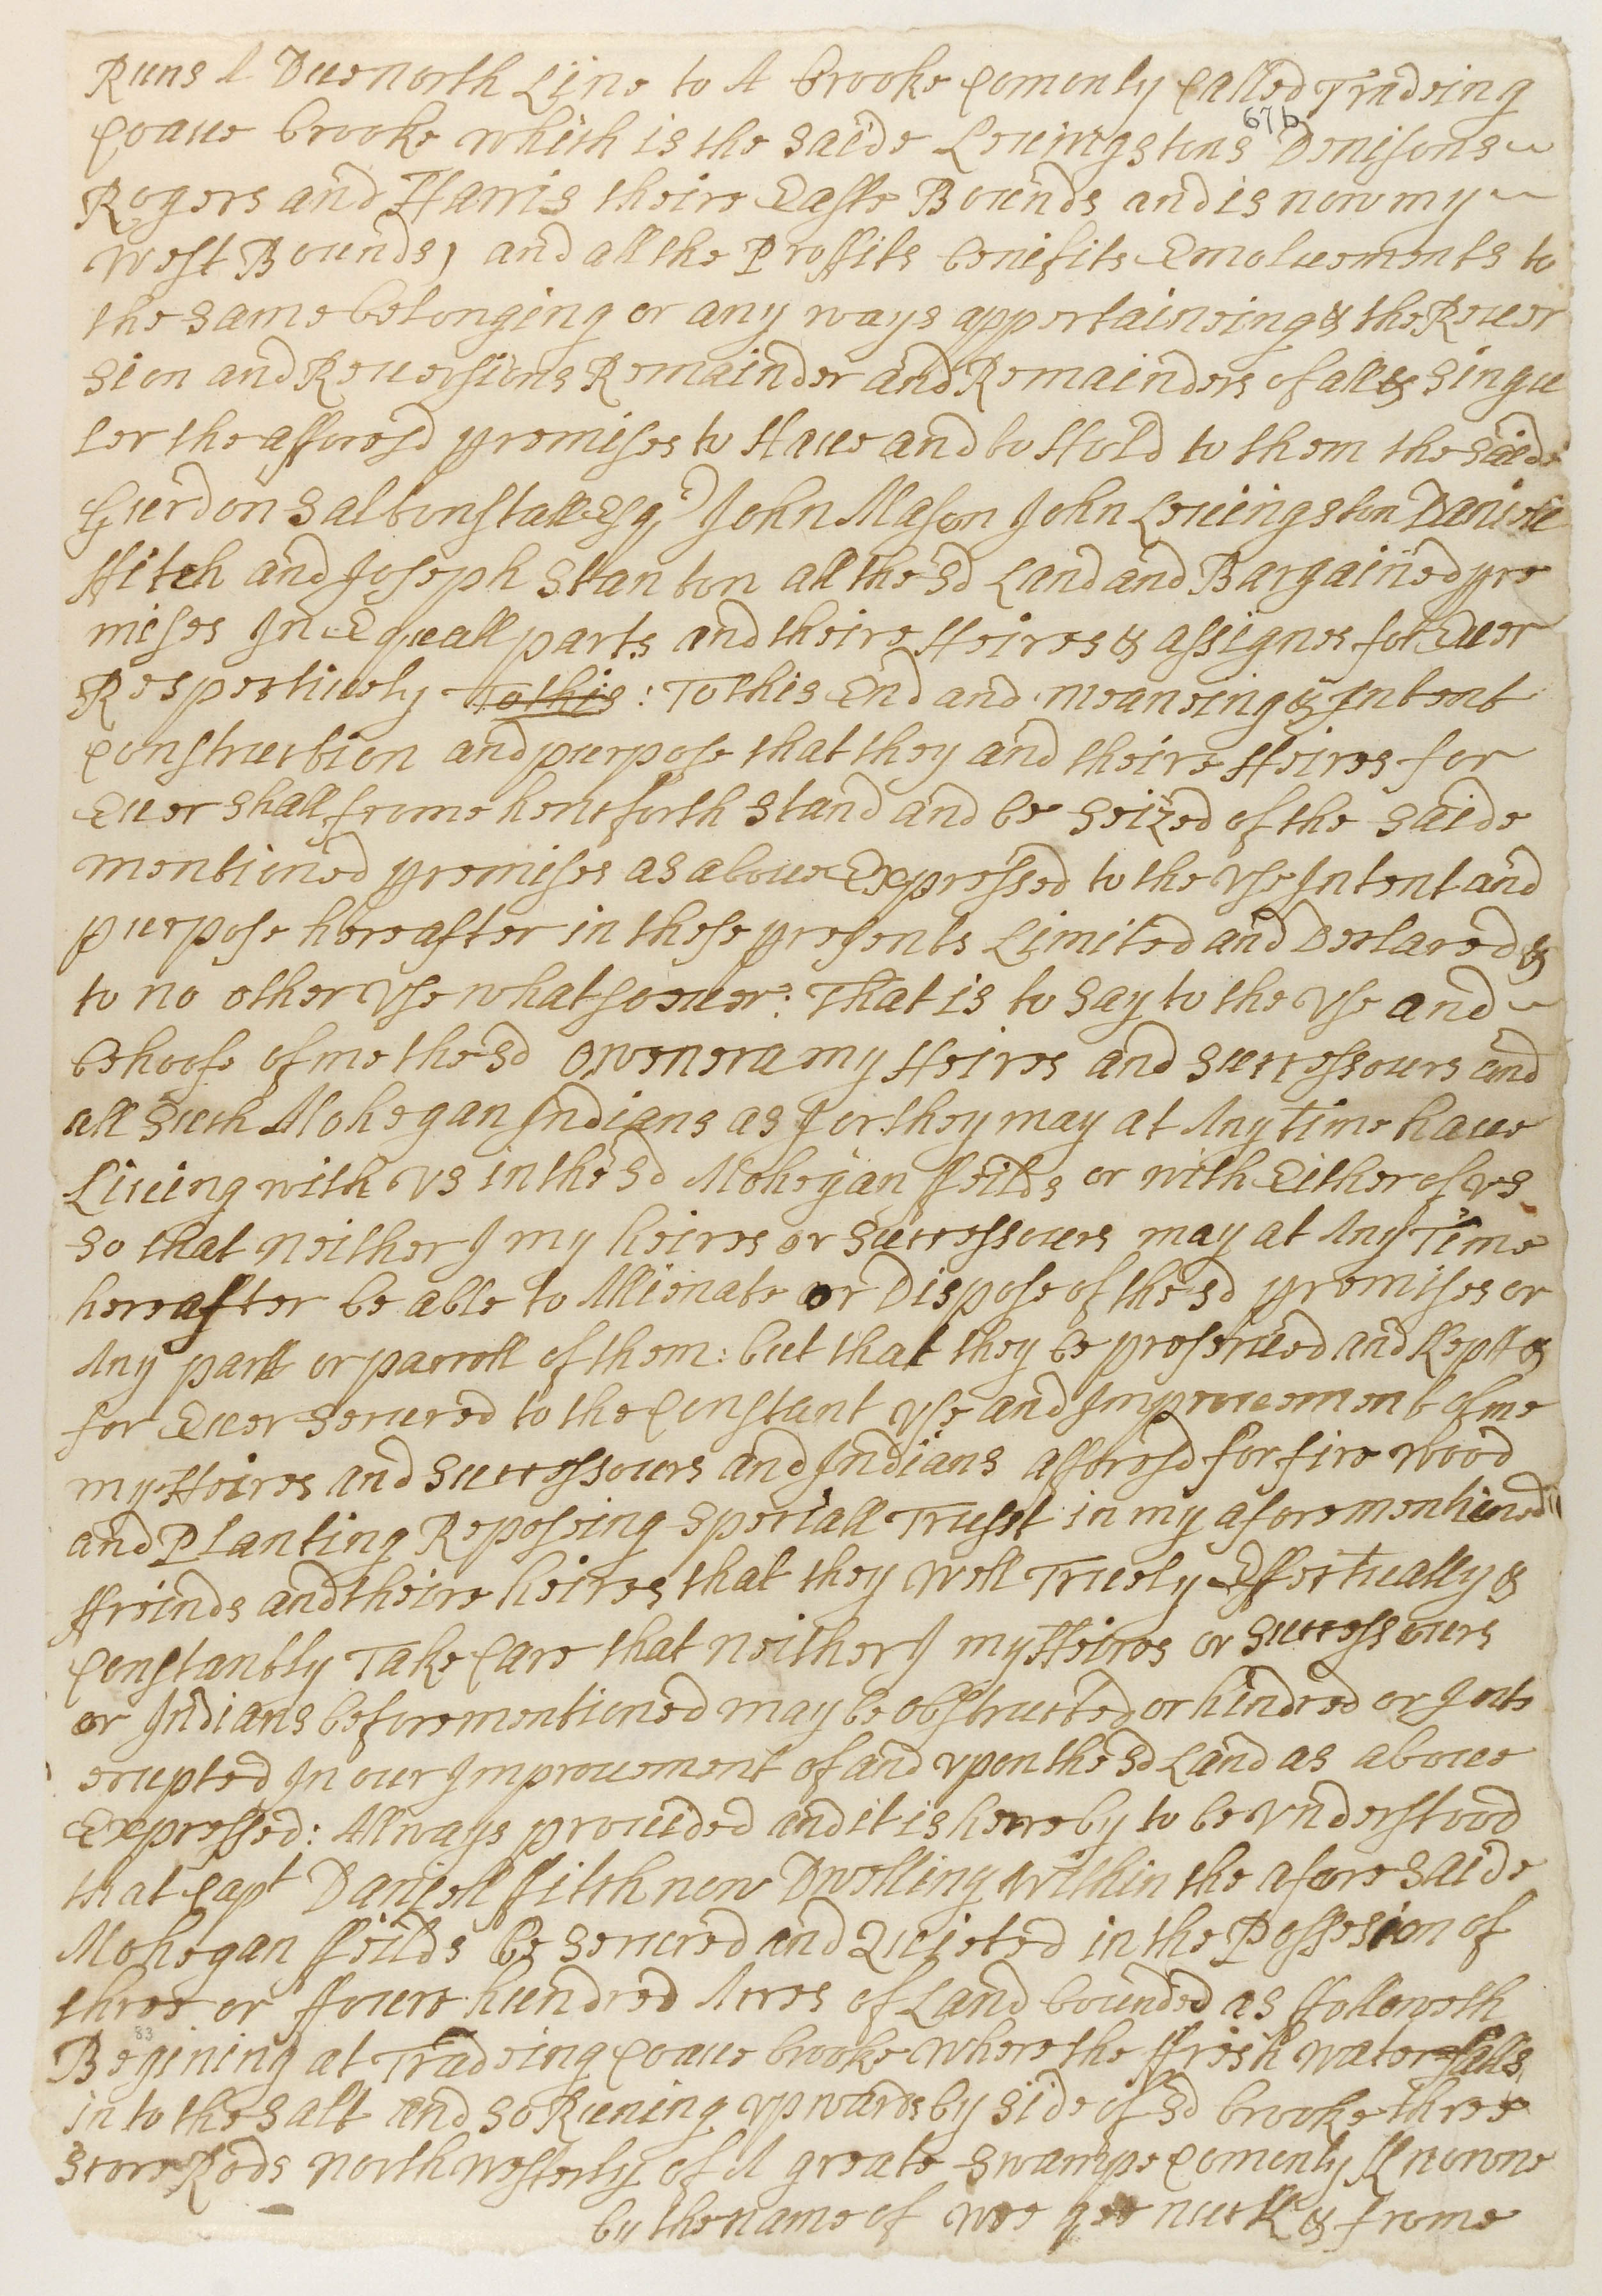 Runs A Due north Line to A brooke Comonly Called Tradeing
67b
Coaue brooke which is the saide Leuingstons Denisons
Rogers and Harris theire Easte Bounds and is now my
West Bounds, and all the Proffits benifits Emoluements to
the same belonging or any ways appertaineing & the Reuer
sion and Reuersions Remainder and Remainders of all & singu
ler the afforesd premises to Haue and to Hold to them the saide
Gurdon Saltonstall Esqr John Mason John Leuingston Daniell
ffitch and Joseph Stanton all the sd Land and Bargained pre
mises In Equall parts and theire Heires & assignes for Euer
Respectiuely To this : To this End and meaneing & Intent
Construction and purpose that they and theire Heires for
Euer shall frome henceforth stand and be seized of the saide
mentioned premises as aboue Expressed to the vse Intent and
purpose hereafter in these presents Limited and Declared &
to no other vse whatsoeuer: That is to say to the vse and
behoofe of me the sd Oweneca my Heires and successours and
all such Mohegan Indians as I or they may at Any time haue
Liueing with vs in the sd Mohegan ffeilds or with Either of vs
so that neither I my heires or successours may at Any Time
hereafter be able to Allienate or Dispose of the sd premises or
Any part or parcell of them: but that they be preserued and Kept &
for Euer secured to the Constant vse and Improuement of me
my Heires and successours and Indians afforesd for fire wood
and Planting Reposeing speciall Trust in my aforementioned
ffreinds and theire heires that they well Truely Effectually &
Constantly Take Care that neither I my Heires or successours
or Indians beforementioned may be obstructed or hindred or Inte
erupted In our Improuement of and vpon the sd Land as aboue
Expressed: Allways prouided and it is hereby to be vnderstood
that Capt Daniell ffitch now Dwelling within the afore saide
Mohegan ffeilds be secured and Quieted in the Possesion of
three or ffoure hundred Acres of Land bounded as ffolloweth
83
Begining at Tradeing Coaue brooke where the ffresh water falls
in to the salt and so Runing vpwards by side of sd brooke three
score Rods northwesterly of A greate swampe Comonly Knowne
by the name of & frome